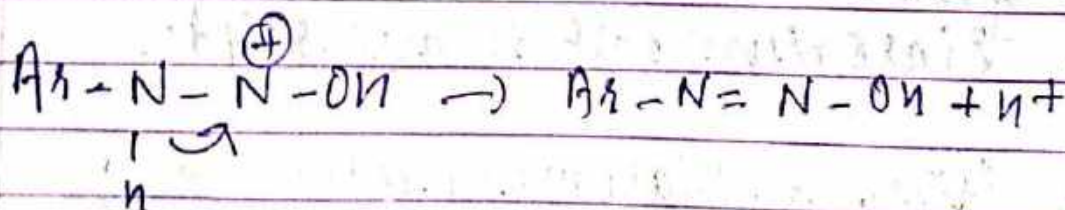 ⊕
Ar - N - N - OH → Ar - N = N - OH + H+
H